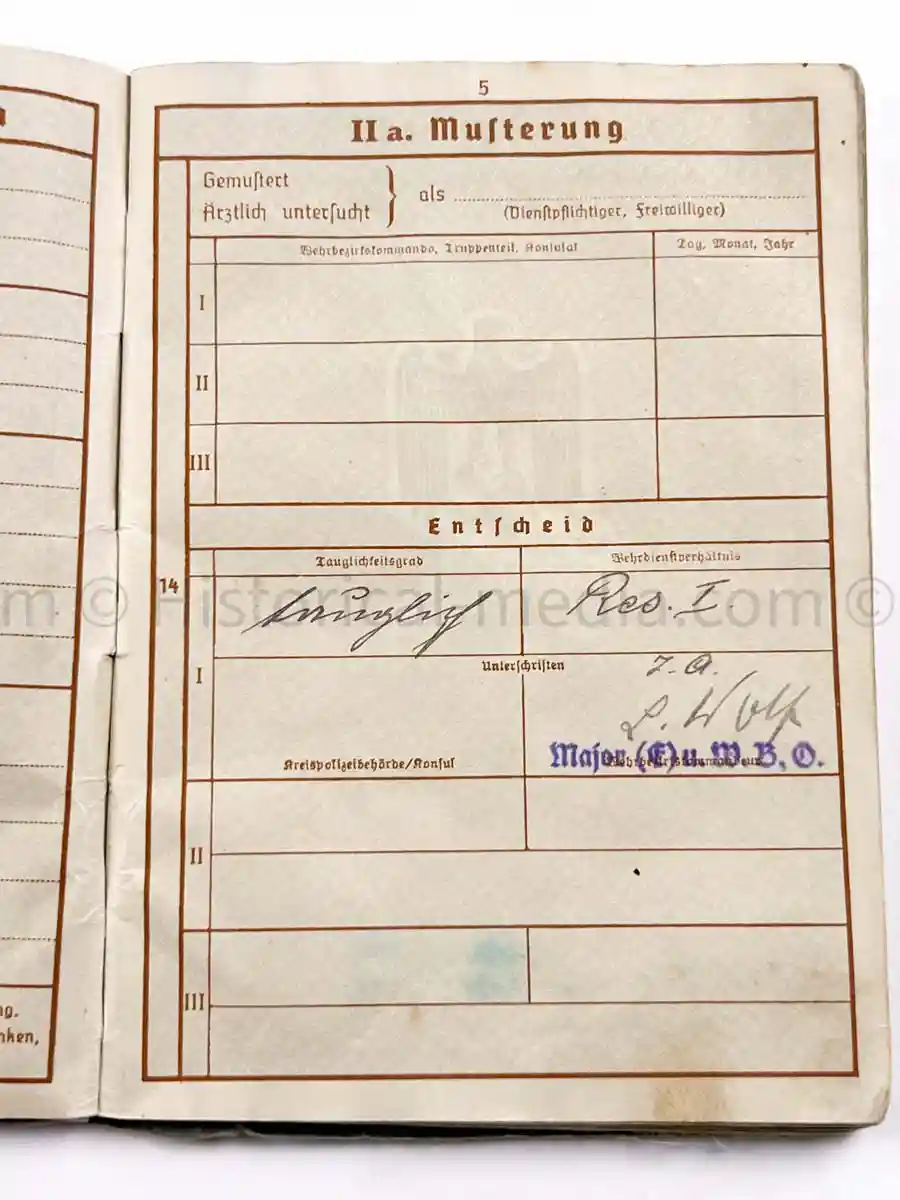 5
IIa. Muſterung
Gemuſtert
Ärztlich unterſucht } als
(Dienſtpflichtiger, Freiwilliger)
Wehrbezirkskommando, Truppenteil, Konſulat
Tag, Monat, Jahr
I
II
III
Entſcheid
Tauglichkeitsgrad
Wehrdienſtverhältnis
14
tauglich
Res. I.
m © Historicalmedia.com ©
I
Unterſchriften
J. A.
L. Wolf
Major (E) u. W. B. O.
Kreispolizeibehörde/Konſul
Wehrbezirkskommandeur
II
III
ng.
nken,